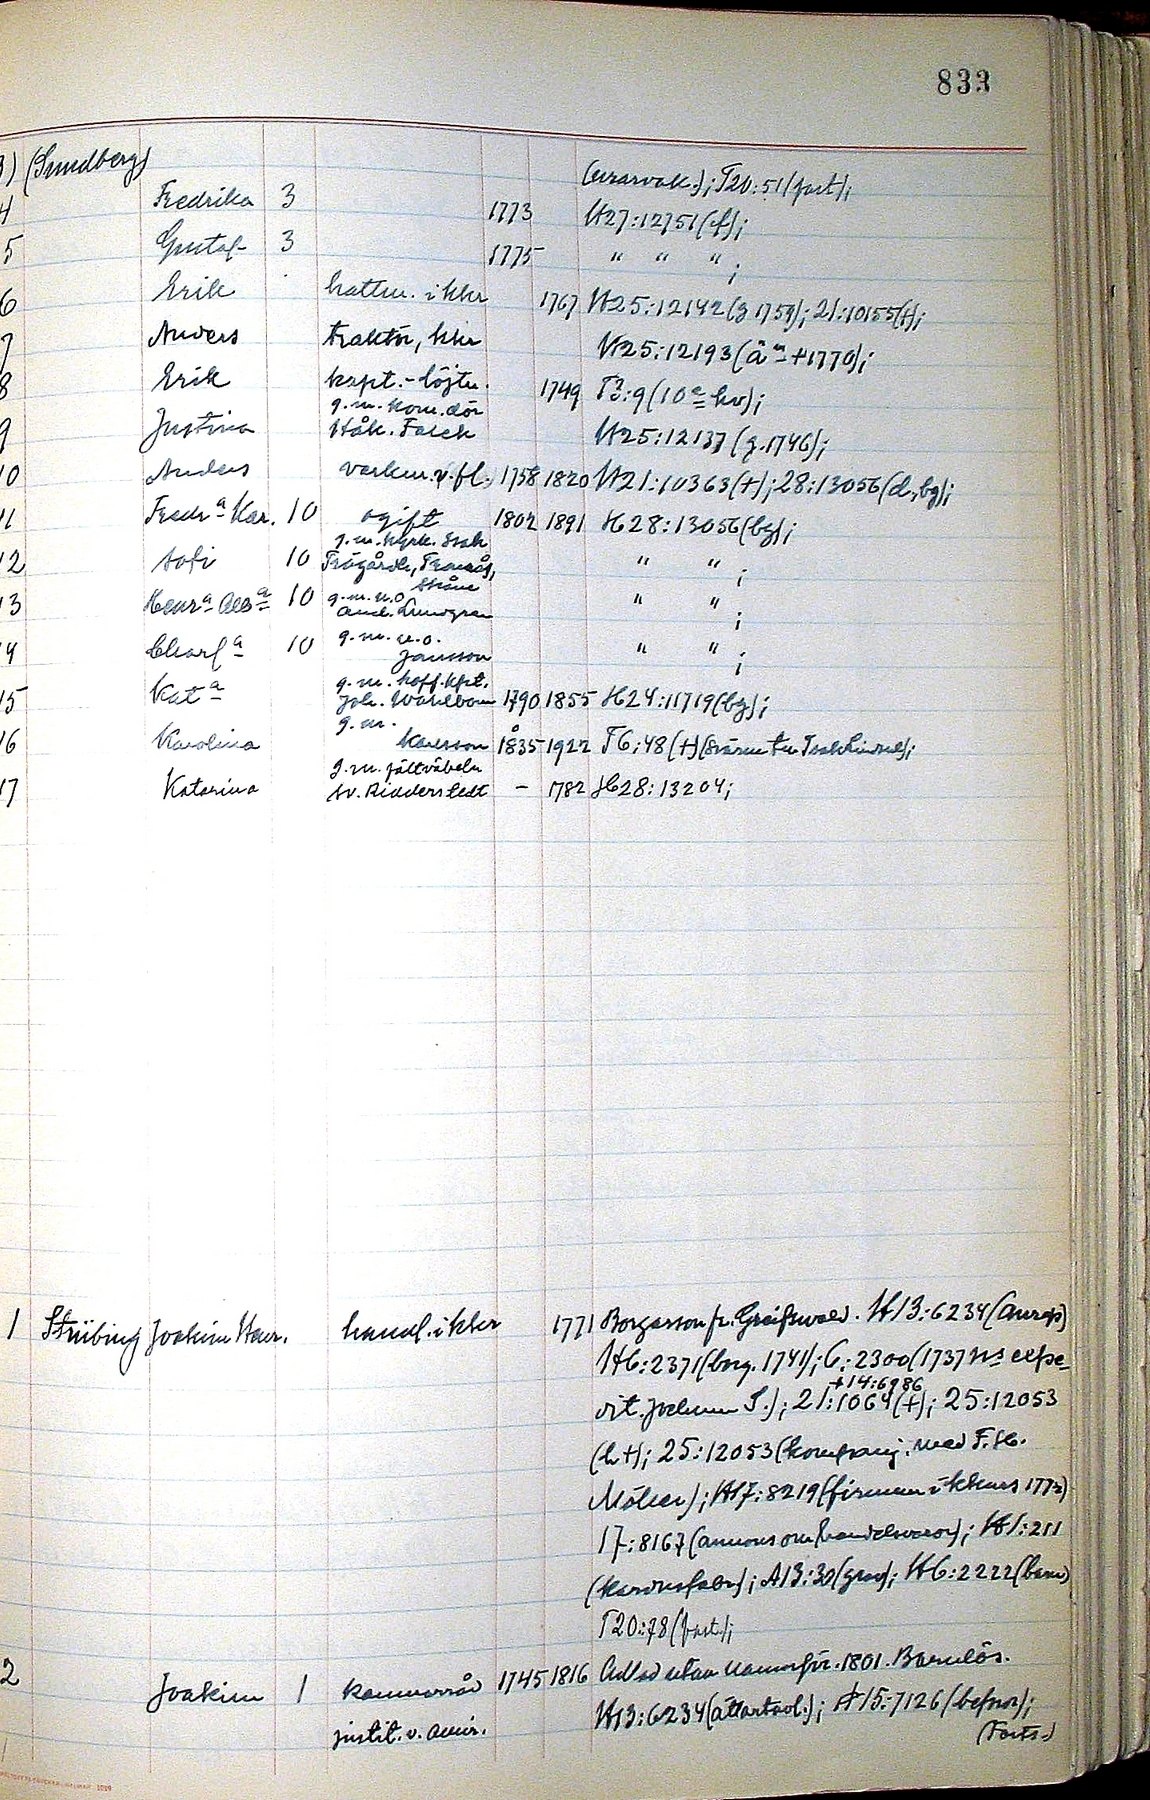 833
3) (Sundberg)
(svarvak.); T20:51 (port);
4 Fredrika 3 1773 H27:12751 (f);
5 Gustaf 3 1775 " " " ;
6 Erik hattm. i kkr 1767 H25:12142 (g 1759); 21:10155 (f);
7 Anders traktör, kkr H25:12193 (än + 1770);
8 Erik kapt.-löjtn. 1749 T3:9 (10e kv);
g.m. kom.dör
9 Justina Håk. Falck H25:12137 (g. 1746);
10 Anders varkm. v. fl. 1758 1820 H21:10363 (+); 28:13056 (d, bg);
11 Fredra Kar. 10 ogift 1802 1891 H28:13056 (bg);
g.m. kyrk.
12 Sofi 10 " " ;
Skåne
13 Henra Alba 10 g.m. u.o " " ;
And. Lundgren
14 Charla 10 g.m. u.o. " " ;
Jansson
g.m. hoff.kpt.
15 Kata Joh. Wahlbom 1790 1855 H24:11719 (bg);
g.m.
16 Karolina Karlsson 1835 1922 T6:48 (+)
g.m. fältväbeln
17 Katarina Sv. Ridderstedt – 1782 H28:13204;
1 Strübing Joakim Henr. handl. i kkr 1771 Borgarson fr. Greifswald. H13:6234 (anrep)
H6:2371 (borg. 1741); 6:2300 (1737 ns expe-
+ 14:6986
dit. Jochum S.); 21:1064 (+); 25:12053
(h+); 25:12053 (kompanj. med F. H.
Möller); H17:8219 (firman i kkurs 1772)
17:8167 (annons om handelsvaror); H1:211
(kardusfabr); A13:30 (grav); H6:2222 (barn)
T20:78 (port.);
2 Joakim 1 kammarråd 1745 1816 Adlad utan namnför. 1801. Barnlös.
justit. v. amir. H13:6234 (ättartavl.); H15:7126 (befor);
(Forts.)